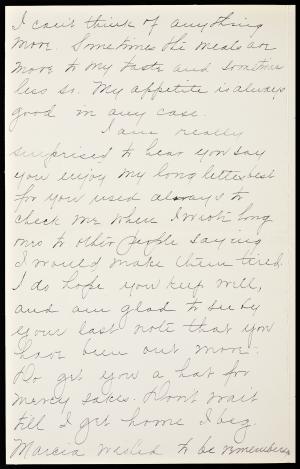 I can't think of anything
more. Sometimes the meals are
more to my taste and sometimes
less so. My appetite is always
good in any case.
I am really
surprised to hear you say
you enjoy my long letters best
for you used always to
check me when I wrote long
ones to other people saying
I would make them tired.
I do hope you keep well,
and am glad to see by
your last note that you
have been out more.
Do get you a hat for
mercy sakes. Don't wait
till I get home I beg.
Marcia wished to be remembered